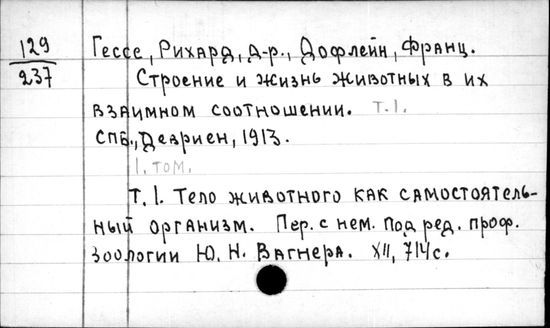 129
237
Гессе, Рихард, д-р., Дофлейн, Франц.
Строение и жизнь животных в их
взаимном соотношении. Т.1.
СПб., Девриен, 1913.
1. том.
Т.1. Тело животного как самостоятель-
ный организм. Пер. с нем. Под ред. проф.
зоологии Ю. Н. Вагнера. XII, 714 с.